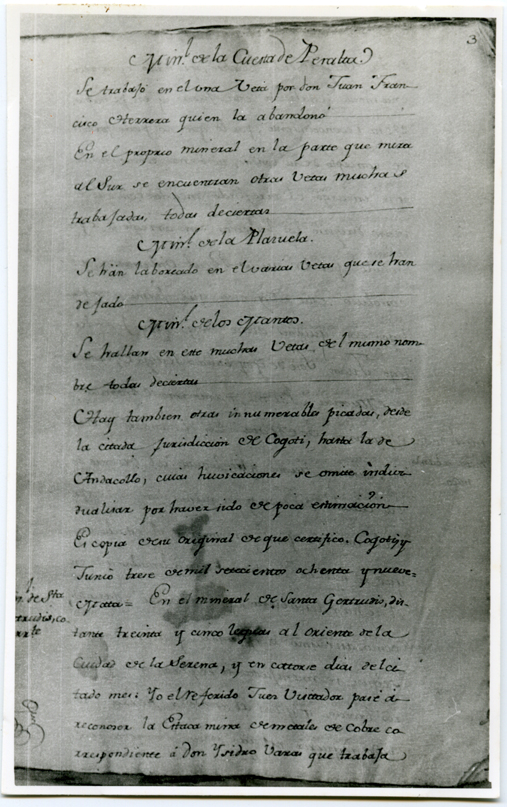 3
Min.l de la Cuesta de Peralta.
Se trabajó en el una Veta por don Juan Fran
cisco Herrera quien la abandonó
En el proprio mineral en la parte que mira
al Sur se encuentran otras Vetas muchas
trabajadas, todas deciertas
Min.l de la Plazuela.
Se hán laboreado en el varias Vetas que se han
dejado
Min.l de los Mantos.
Se hallan en este muchas Vetas del mismo nom
bre todas deciertas
Hay tambien otras innumerables picadas, desde
la citada Jurisdiccion de Cogoti, hasta la de
Andacollo, cuias huvicaciones se omite indivi
dualisar por haver sido de poca estimación
Es copia de su original de que certifico. Cogoti y
Junio trese de mil setecientos ochenta y nueve=
Matta= En el mineral de Santa Gertrudis, dis
tante treinta y cinco leguas al oriente de la
Ciudad de la Serena, y en catorse dias del ci
tado mes: Yo el referido Jues Visitador pasé á
reconoser la Estaca mina de metales de Cobre co
rrespondiente á don Ysidro Varas que trabaja
de Sta
trudis, co